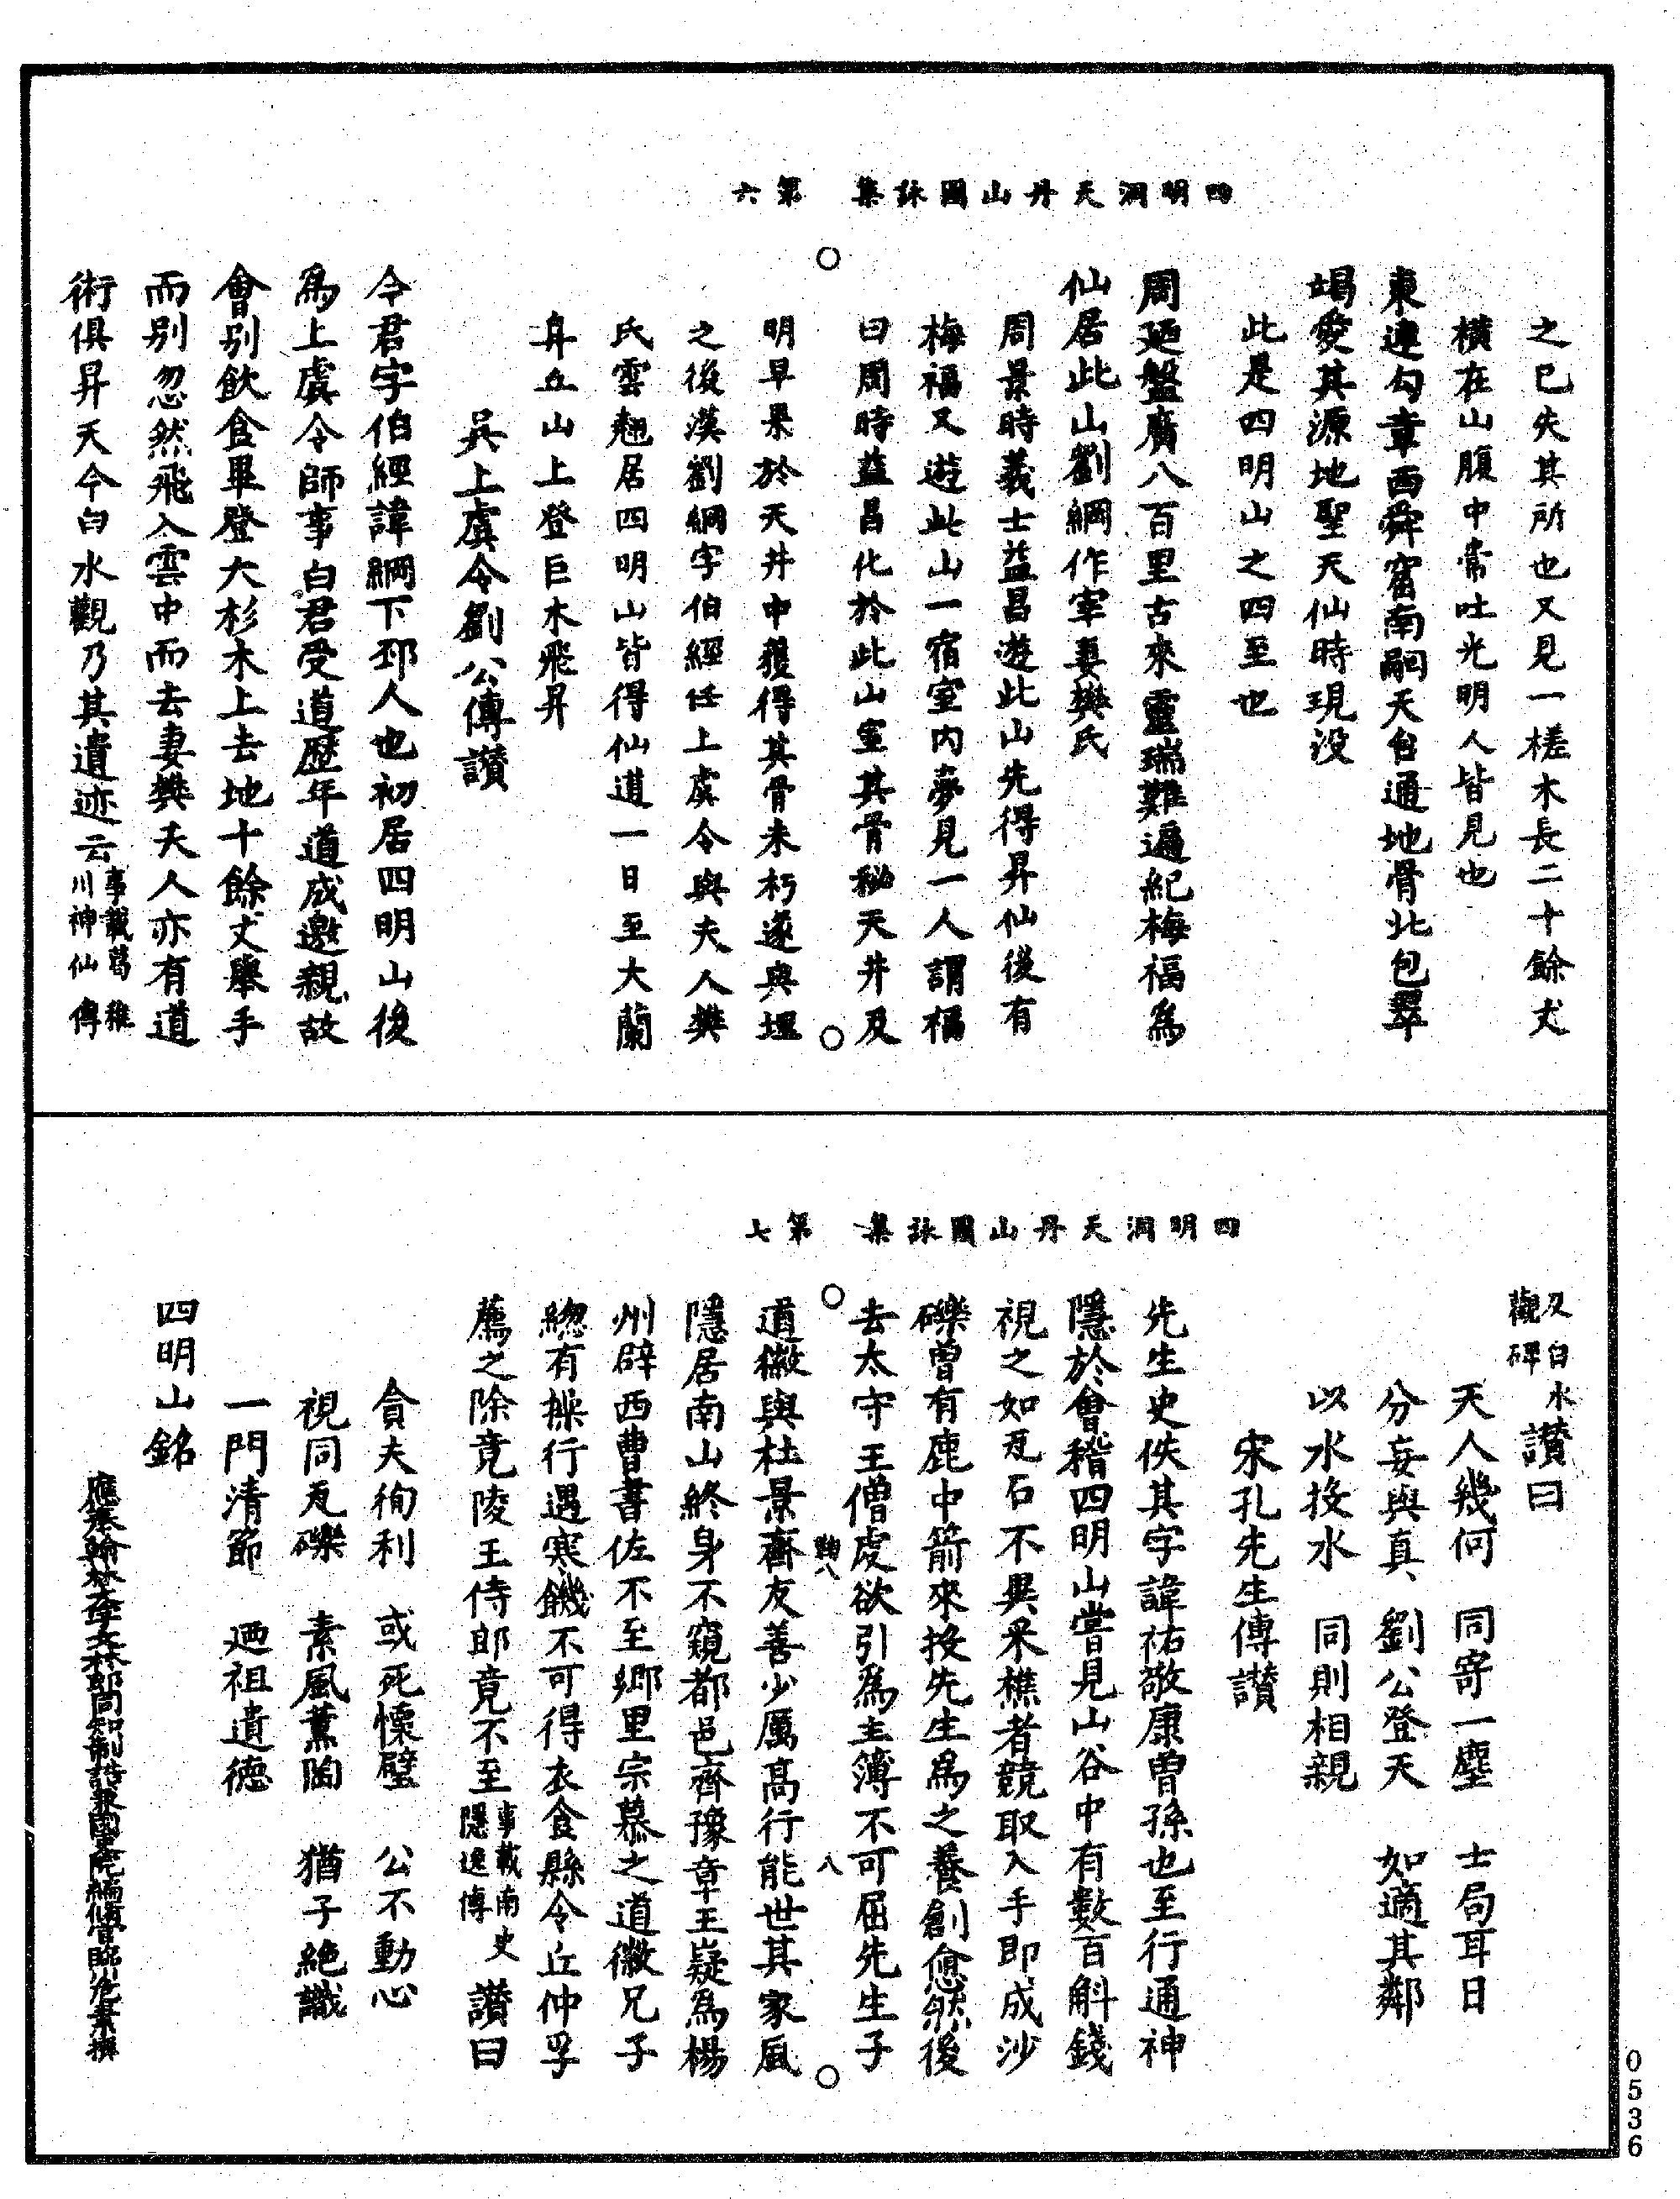 四明洞天丹山圖詠集　第六
之已失其所也又見一槎木長二十餘丈
橫在山腹中常吐光明人皆見也
東連勾章西舜窟南嗣天台通地骨北包翠
竭愛其源地聖天仙時現没
此是四明山之四至也
周廻盤廣八百里古來靈瑞難遍紀梅福爲
仙居此山劉綱作宰妻樊氏
周景時義士益昌遊此山先得昇仙後有
梅福又遊此山一宿室内夢見一人謂福
曰周時益昌化於此山室其骨秘天井及
明早果於天井中獲得其骨未朽遂與埋
之後漢劉綱字伯經任上虞令與夫人樊
氏雲翹居四明山皆得仙道一日至大蘭
阜丘山上登巨木飛昇
吳上虞令劉公傳讃
令君字伯經諱綱下邳人也初居四明山後
爲上虞令師事白君受道歷年道成邀親故
會别飲食畢登大杉木上去地十餘丈舉手
而别忽然飛入雲中而去妻樊夫人亦有道
術俱昇天今白水觀乃其遺迹云事載葛稚川神仙傳
四明洞天丹山圖詠集　第七
及白水觀碑讃曰
天人幾何　同寄一塵　士局耳日
分妄與真　劉公登天　如適其鄰
以水投水　同則相親
宋孔先生傳讃
先生史佚其字諱祐敬康曾孫也至行通神
隱於會稽四明山嘗見山谷中有數百斛錢
視之如瓦石不異采樵者競取入手即成沙
礫曾有鹿中箭來投先生爲之養創愈然後
去太守王僧虔欲引爲主簿不可屈先生子
鞠八　八
道徽與杜景齊友善少厲高行能世其家風
隱居南山終身不窺都邑齊豫章王嶷爲楊
州辟西曹書佐不至鄉里宗慕之道徽兄子
緫有操行遇寒饑不可得衣食縣令丘仲孚
薦之除竟陵王侍郎竟不至事載南史隱逸傳讃曰
貪夫徇利　或死懷璧　公不動心
視同瓦礫　素風薰陶　猶子絶識
一門清節　廼祖遺德
四明山銘
應奉翰林文字文林郎同知制誥兼國史院編修官臨川危素撰
0536